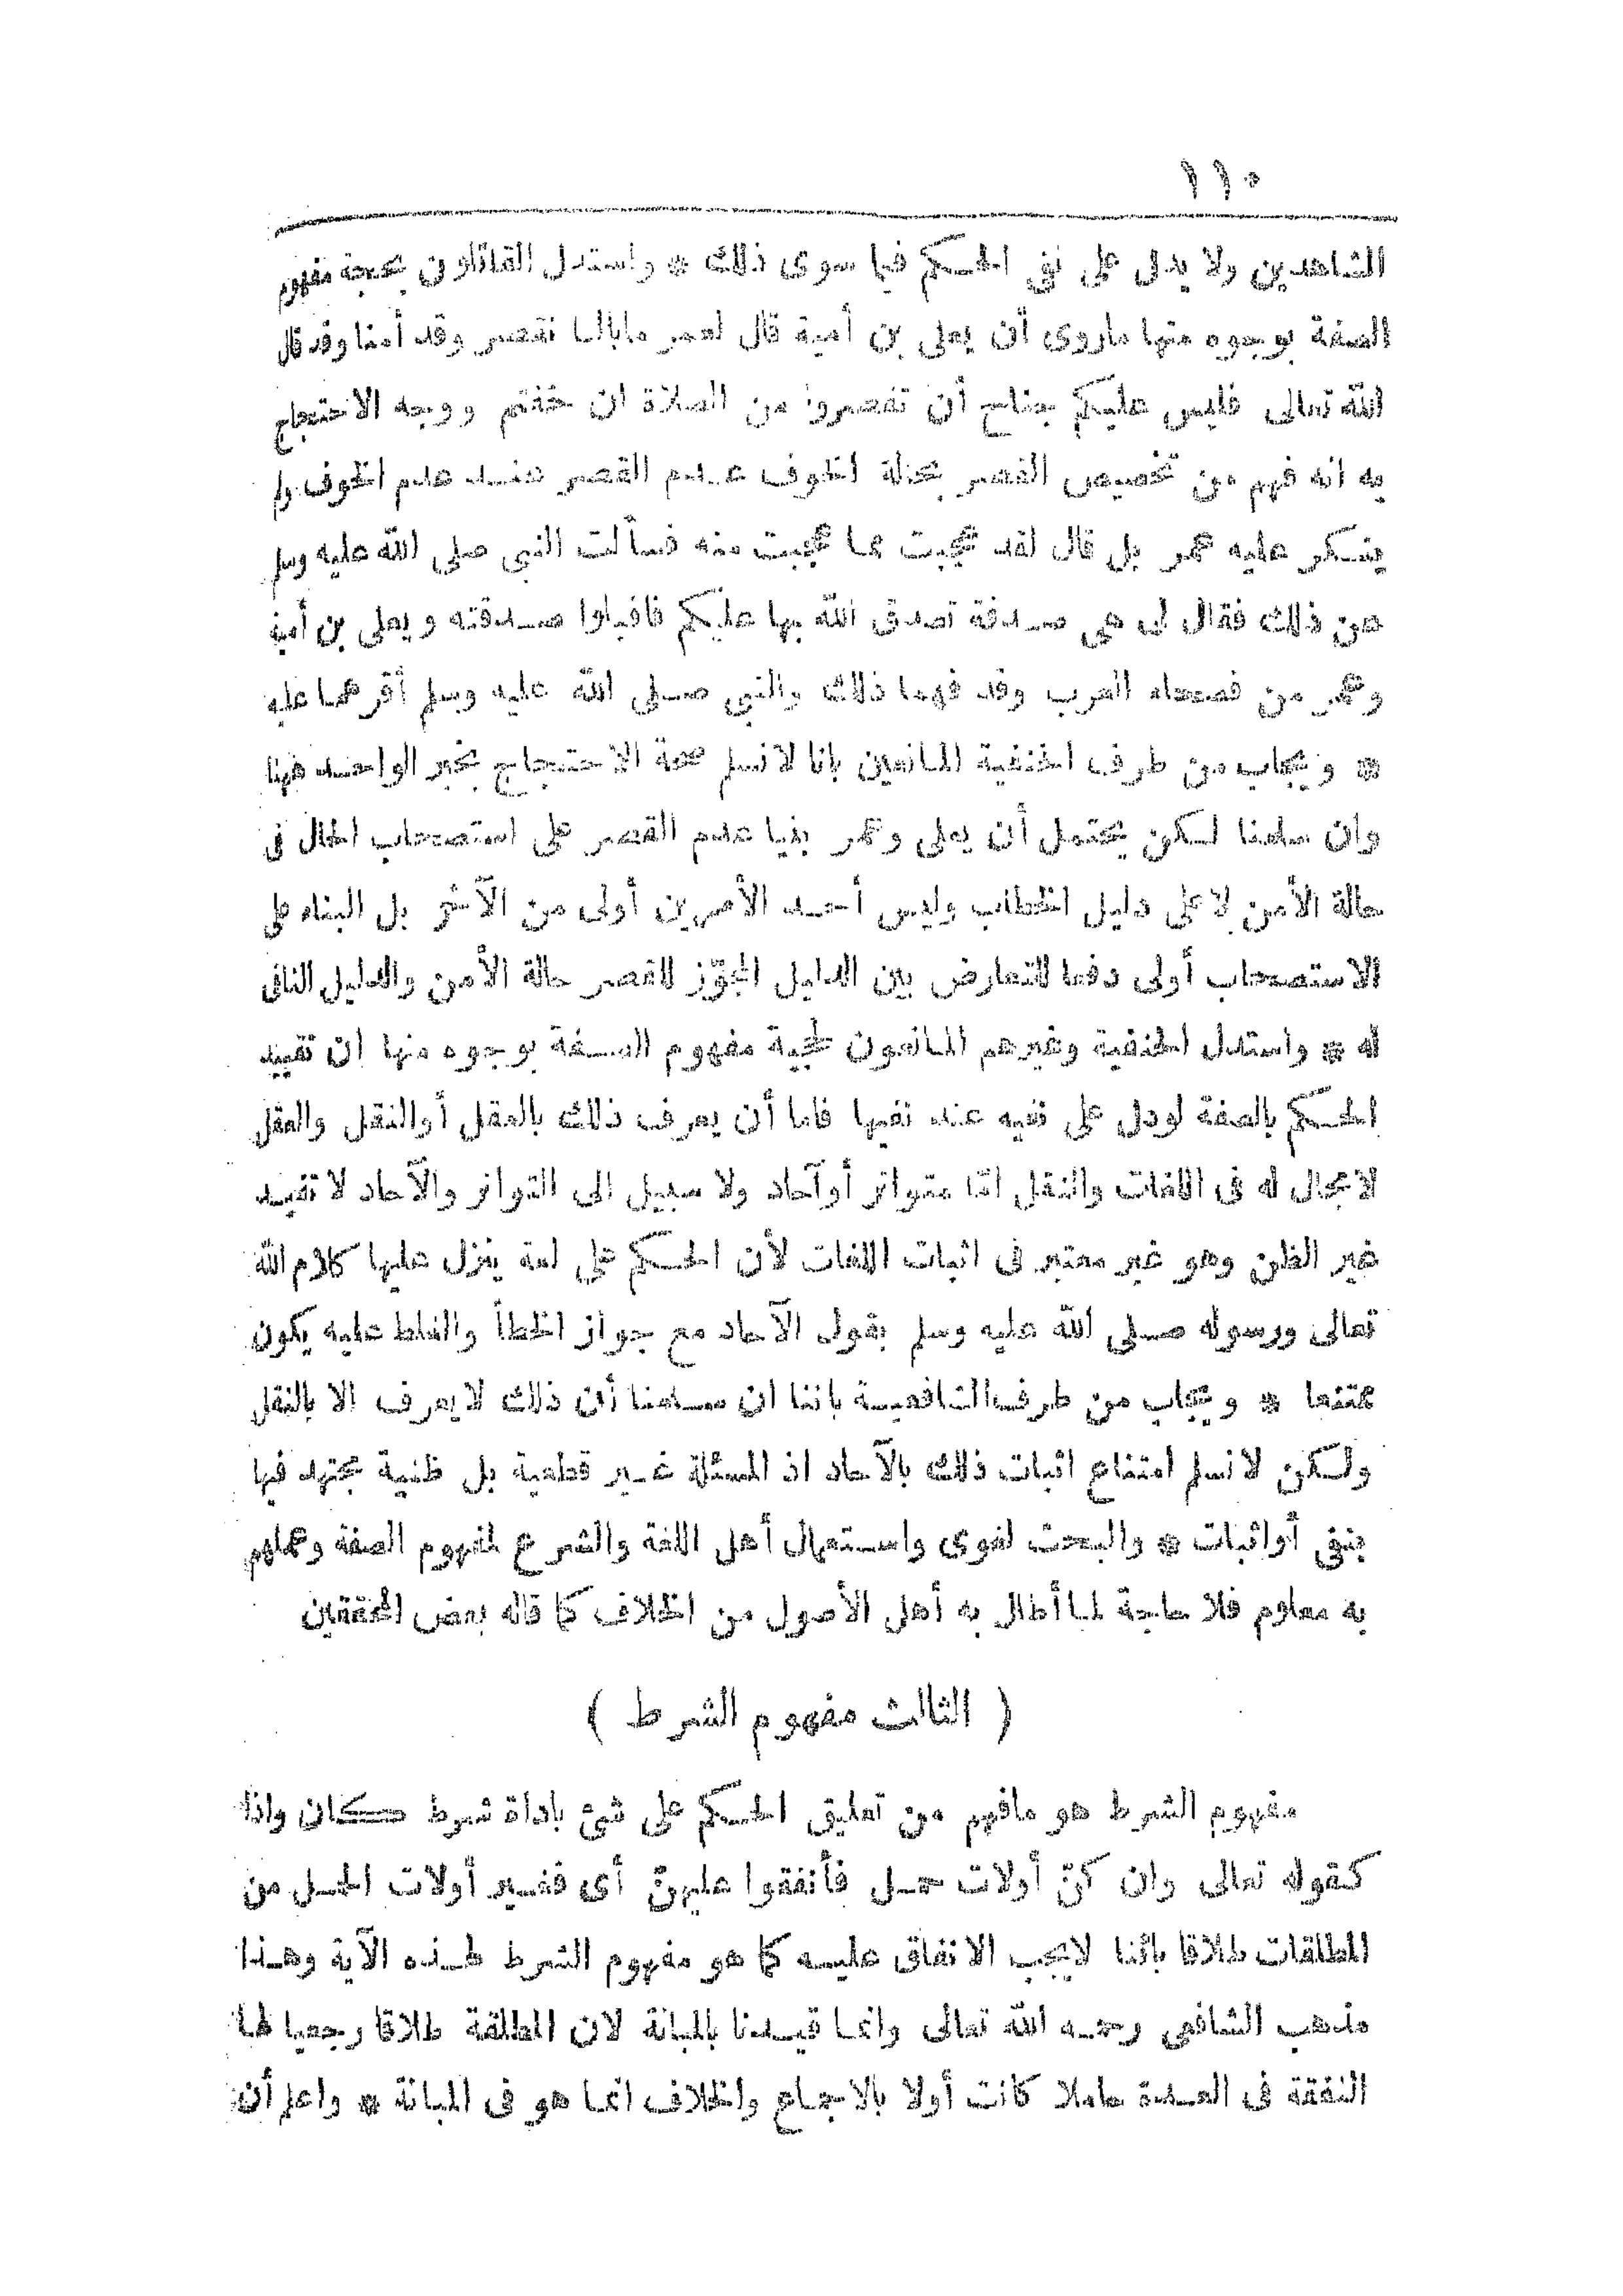 ١١٠
الشاهدين ولا يدل على نفى الحكم فيما سوى ذلك * واستدل القائلون بحجة مفهوم
الصفة بوجوه منها ماروى أن يعلى بن أمية قال لعمر مابالنا نقصر وقد أمنا وقد قال
الله تعالى فليس عليكم جناح أن تقصروا من الصلاة ان خفتم ووجه الاحتجاج
به انه فهم من تخصيص القصر بحالة الخوف عدم القصر عند عدم الخوف ولم
ينكر عليه عمر بل قال لقد عجبت مما عجبت منه فسألت النبى صلى الله عليه وسلم
عن ذلك فقال لى هى صدقة تصدق الله بها عليكم فاقبلوا صدقته ويعلى بن أمية
وعمر من فصحاء العرب وقد فهما ذلك والنبى صلى الله عليه وسلم أقرهما عليه
* ويجاب من طرف الحنفية المانعين بانا لا نسلم صحة الاحتجاج بخبر الواحد ههنا
وان سلمنا لكن يحتمل أن يعلى وعمر بنيا عدم القصر على استصحاب الحال فى
حالة الأمن لا على دليل الخطاب وليس أحد الأمرين أولى من الآخر بل البناء على
الاستصحاب أولى دفعا للتعارض بين الدليل المجوّز للقصر حالة الأمن والدليل النافى
له * واستدل الحنفية وغيرهم المانعون لحجية مفهوم الصفة بوجوه منها ان تقييد
الحكم بالصفة لودل على نفيه عند نفيها فاما أن يعرف ذلك بالعقل أوالنقل والعقل
لامجال له فى اللغات والنقل امّا متواتر أوآحاد ولا سبيل الى التواتر والآحاد لا تفيد
غير الظن وهو غير معتبر فى اثبات اللغات لأن الحكم على لغة ينزل عليها كلام الله
تعالى ورسوله صلى الله عليه وسلم بقول الآحاد مع جواز الخطأ والغلط عليه يكون
ممتنعا * ويجاب من طرف الشافعية باننا ان سلمنا أن ذلك لا يعرف الا بالنقل
ولكن لا نسلم امتناع اثبات ذلك بالآحاد اذ المسئلة غير قطعية بل ظنية مجتهد فيها
بنفى أواثبات * والبحث لغوى واستعمال أهل اللغة والشرع لمفهوم الصفة وعملهم
به معلوم فلا حاجة لما أطال به أهل الأصول من الخلاف كما قاله بعض المحققين
( الثالث مفهوم الشرط )
مفهوم الشرط هو مافهم من تعليق الحكم على شئ باداة شرط كان واذا
كقوله تعالى وان كنّ أولات حمل فأنفقوا عليهنّ أى فغير أولات الحمل من
المطلقات طلاقا بائنا لا يجب الانفاق عليه كما هو مفهوم الشرط لهذه الآية وهذا
مذهب الشافعى رحمه الله تعالى وانما قيدنا بالمبانة لان المطلقة طلاقا رجعيا لها
النفقة فى العدة حاملا كانت أولا بالاجماع والخلاف انما هو فى المبانة * واعلم أن